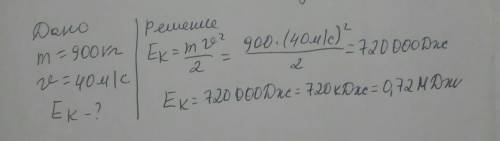 Дано
m = 900кг
v = 40м/с
Eк - ?
Решение
Eк = mv²/2 = 900·(40м/с)²/2 = 720000Дж
Eк = 720000Дж = 720кДж = 0,72МДж